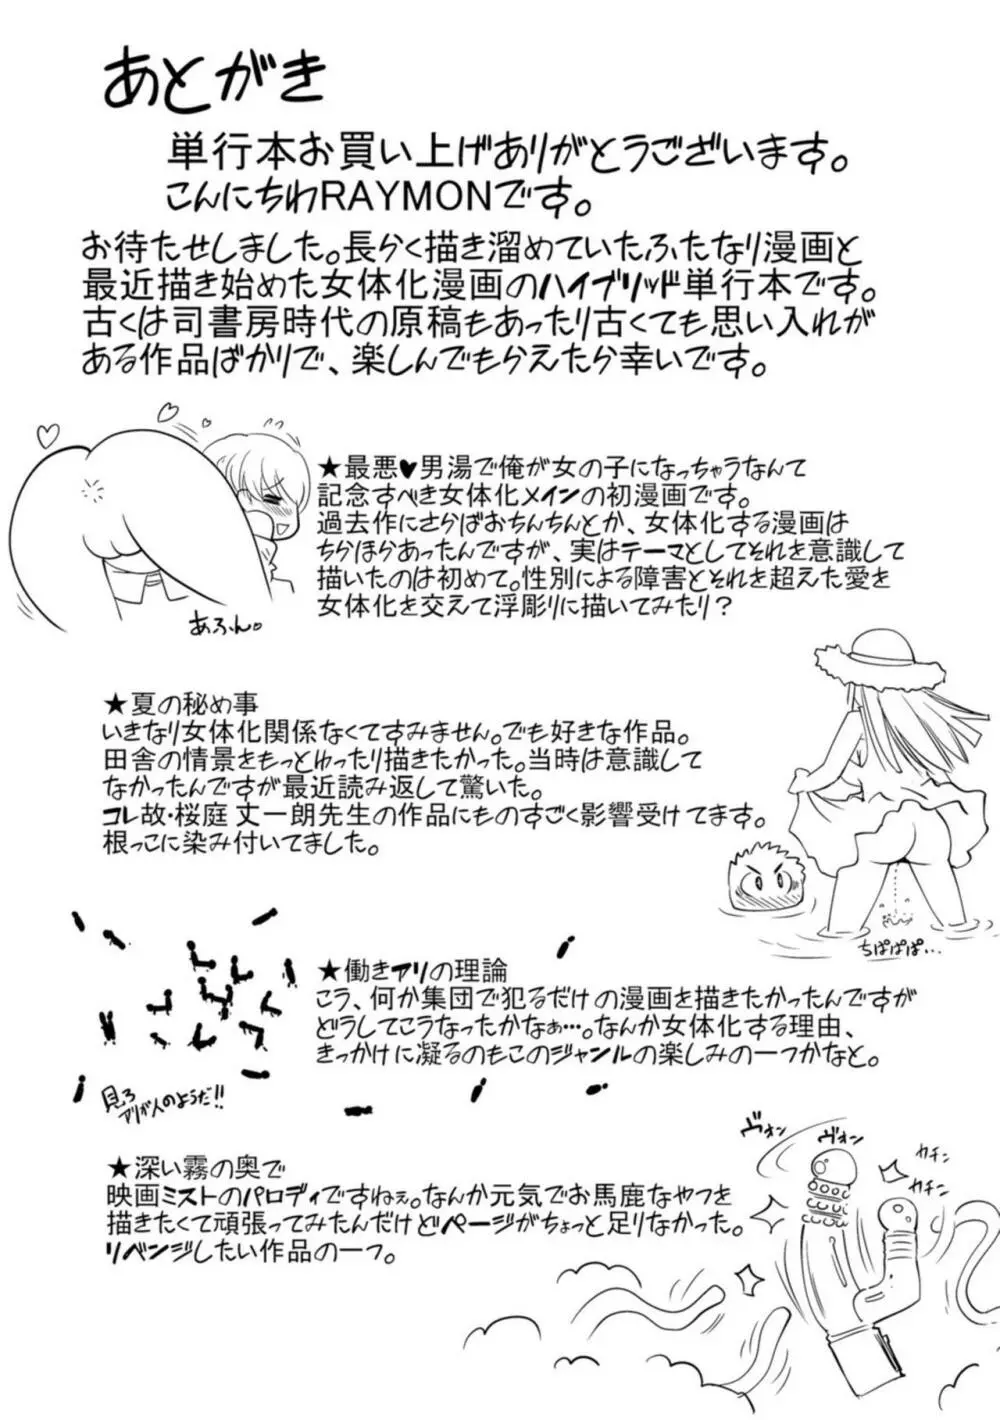 あとがき
単行本お買い上げありがとうございます。
こんにちわRAYMONです。
お待たせしました。長らく描き溜めていたふたなり漫画と
最近描き始めた女体化漫画のハイブリッド単行本です。
古くは司書房時代の原稿もあったり古くても思い入れが
ある作品ばかりで、楽しんでもらえたら幸いです。
★最悪♥男湯で俺が女の子になっちゃうなんて
記念すべき女体化メインの初漫画です。
過去作にさらばおちんちんとか、女体化する漫画は
ちらほらあったんですが、実はテーマとしてそれを意識して
描いたのは初めて。性別による障害とそれを超えた愛を
女体化を交えて浮彫りに描いてみたり？
あふん。
★夏の秘め事
いきなり女体化関係なくてすみません。でも好きな作品。
田舎の情景をもっとゆったり描きたかった。当時は意識して
なかったんですが最近読み返して驚いた。
コレ故・桜庭 丈一朗先生の作品にものすごく影響受けてます。
根っこに染み付いてました。
ちぱぱぱ…
★働きアリの理論
こう、何か集団で犯るだけの漫画を描きたかったんですが
どうしてこうなったかなぁ…。なんか女体化する理由、
きっかけに凝るのもこのジャンルの楽しみの一つかなと。
見ろ
アリが人のようだ!!
★深い霧の奥で
映画ミストのパロディですねぇ。なんか元気でお馬鹿なやつを
描きたくて頑張ってみたんだけどページがちょっと足りなかった。
リベンジしたい作品の一つ。
ヴォン
ヴォン
カチン
カチン